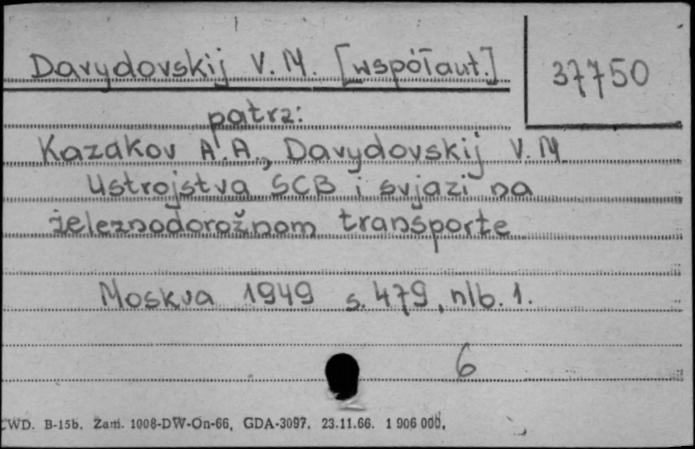 Davydovskij V. M. [współaut.]
37750
patrz:
Kazakov A.A., Davydovskij V. M.
Ustrojstva SCB i svjazi na
železnodorožnom transporte
Moskva 1949 s. 479, nlb. 1.
6
CWD. B-15b. Zam. 1008-DW-On-66, GDA-3097. 23.11.66. 1 906 000.